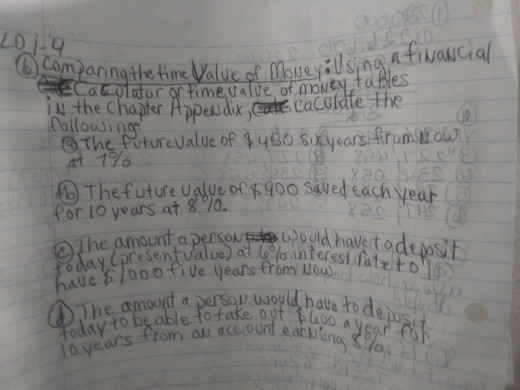 LO 1-4
⑥ Comparing the time Value of Money: Using a financial
Caculator or time value of money tables
in the Chapter Appendix, caculate the
following:
ⓐ The future value of $450 six years from now
at 7%
ⓑ The future value of $900 saved each year
for 10 years at 8%.
ⓒ The amount a person would have to deposit
today (present value) at 6% interest rate to
have $1000 five years from now.
ⓓ The amount a person would have to deposit
today to be able to take out $600 a year for
10 years from an account earning 8%.